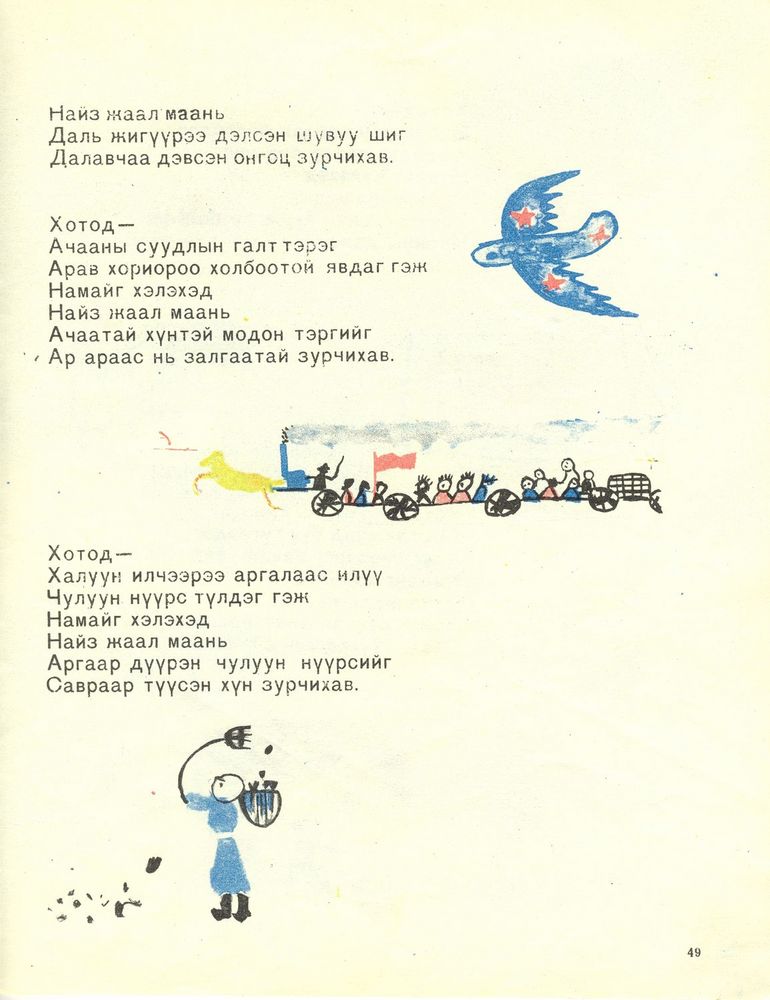 Найз жаал маань
Даль жигүүрээ дэлсэн шувуу шиг
Далавчаа дэвсэн онгоц зурчихав.
Хотод—
Ачааны суудлын галт тэрэг
Арав хориороо холбоотой явдаг гэж
Намайг хэлэхэд
Найз жаал маань
Ачаатай хүнтэй модон тэргийг
Ар араас нь залгаатай зурчихав.
Хотод—
Халуун илчээрээ аргалаас илүү
Чулуун нүүрс түлдэг гэж
Намайг хэлэхэд
Найз жаал маань
Аргаар дүүрэн чулуун нүүрсийг
Савраар түүсэн хүн зурчихав.
49